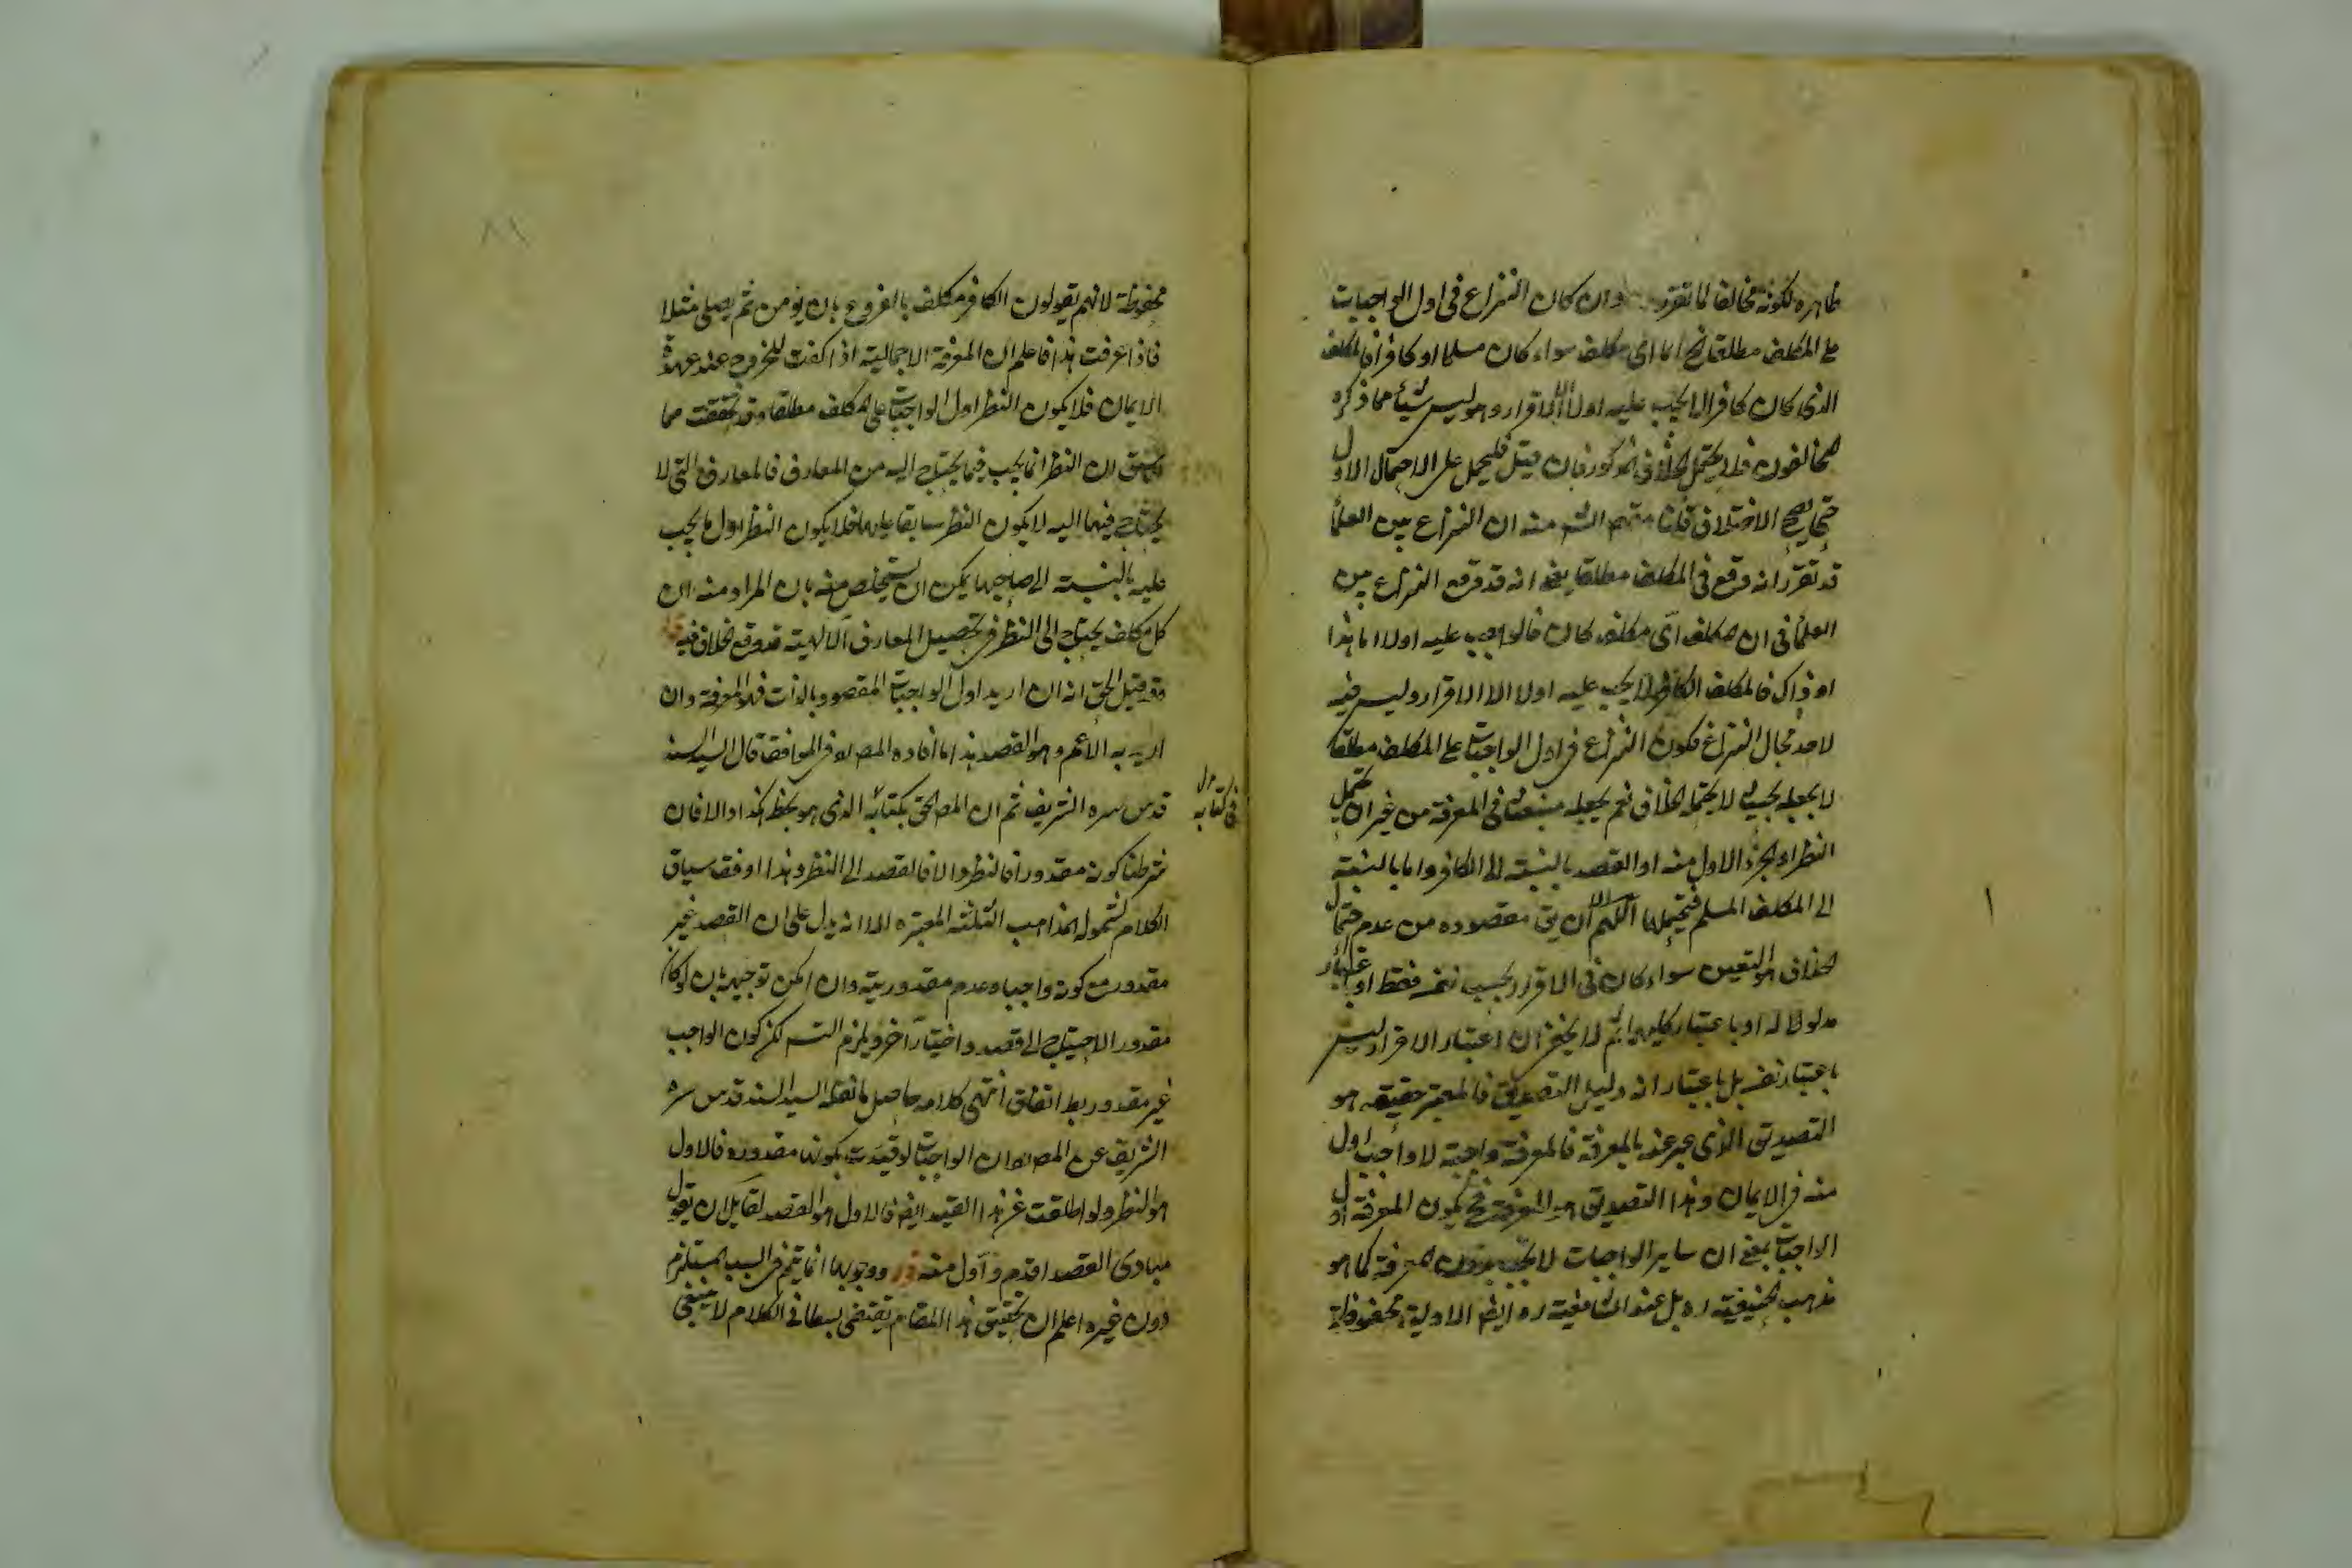 ظاهره لكونه مخالفا لما تقرر وان كان النزاع فى اول الواجبات
على المكلف مطلقا اى مكلف سواء كان مسلما او كافرا فالمكلف
الذى كان كافرا لا يجب عليه اولا الا الاقرار وهو ليس شيئا مما ذكره
المخالفون فلا يحتمل الخلاف المذكور فان قيل فليحمل على الاحتمال الاول
حتى يصح الاختلاف قلنا منه ان النزاع بين العلماء
قد تقرر انه وقع فى المكلف مطلقا يعنى انه قد وقع النزاع بين
العلماء فى ان المكلف اى مكلف كان فالواجب عليه اولا اما هذا
او ذاك فالمكلف الكافر لا يجب عليه اولا الا الاقرار وليس فيه
لاحد مجال النزاع فكون النزاع فى اول الواجبات على المكلف مطلقا
لا يجعله بحيث لا يحتمل الخلاف نعم يجعله فى المعرفة من غير ان يحتمل
النظر او الجزء الاول منه او القصد بالنسبة الى الكافر واما بالنسبة
الى المكلف المسلم فيحتملها اللهم الا ان مقصوده من عدم احتمال
الخلاف هو التعين سواء كان فى الاقرار بحسب نفسه فقط او باعتبار
مدلوله او باعتبار كليهما ثم لا يخفى ان اعتبار الاقرار ليس
باعتبار نفسه بل باعتبار انه دليل التصديق فالمعتبر حقيقة هو
التصديق الذى عبر عنه بالمعرفة فالمعرفة واجبة لا واجب اول
منه فى الايمان وهذا التصديق هو المعرفة فح يكون المعرفة اول
الواجبات بمعنى ان ساير الواجبات لا تجب بدون المعرفة كما هو
مذهب الحنيفية ره بل عند الشافعية ره ايضا الاولية محفوظة
محفوظة لانهم يقولون الكافر مكلف بالفروع بان يؤمن ثم يصلى مثلا
فاذا عرفت هذا فاعلم ان المعرفة الاجمالية اذا كفت للخروج عند عهدة
الايمان فلا يكون النظر اول الواجبات على المكلف مطلقا وقد تحققت مما
سبق ان النظر انما يجب فيما يحتاج اليه من المعارف فالمعارف التى لا
يحتاج فيها اليه لا يكون النظر سابقا عليها فلا يكون النظر اول ما يجب
عليه بالنسبة الى صاحبها يمكن ان يستخلص منه بان المراد منه ان
كل مكلف يحتاج الى النظر فى تحصيل المعارف الالهية قد وقع الخلاف فيه
وقد قيل الحق انه ان اريد اول الواجبات المقصود بالذات فهو المعرفة وان
اريد به الاعم وهو القصد هذا ما افاده المص ره فى المواقف قال السيد السند
قدس سره الشريف ثم ان المص الحق بكتابه الذى هو بخطه هكذا والا فان
فى كتابه
شرطنا كونه مقدورا فالنظر والا فالقصد الى النظر وهذا اوفق بسياق
الكلام لشموله المذاهب الثلثة المعتبره الا انه يدل على ان القصد غير
مقدور مع كونه واجبا وعدم مقدوريته وان امكن توجيهه بان لو كان
مقدورا لاحتياج الى قصد واختيار آخر ويلزم التسه لكن كون الواجب
غير مقدور بط اتفاق انتهى كلامه حاصل ما نقله السيد السند قدس سره
الشريف عن المص ره ان الواجبات لو قيدت بكونها مقدورة فالاول
هو النظر ولو اطلقت عن هذا القيد ايضا فالاول هو القصد لقايل ان يقول
مبادى القصد اقدم واول منه ووجوبها انما يتم فى السبب المستلزم
دون غيره اعلم ان تحقيق هذا المقام يقتضى بسطا فى الكلام لا ينبغى